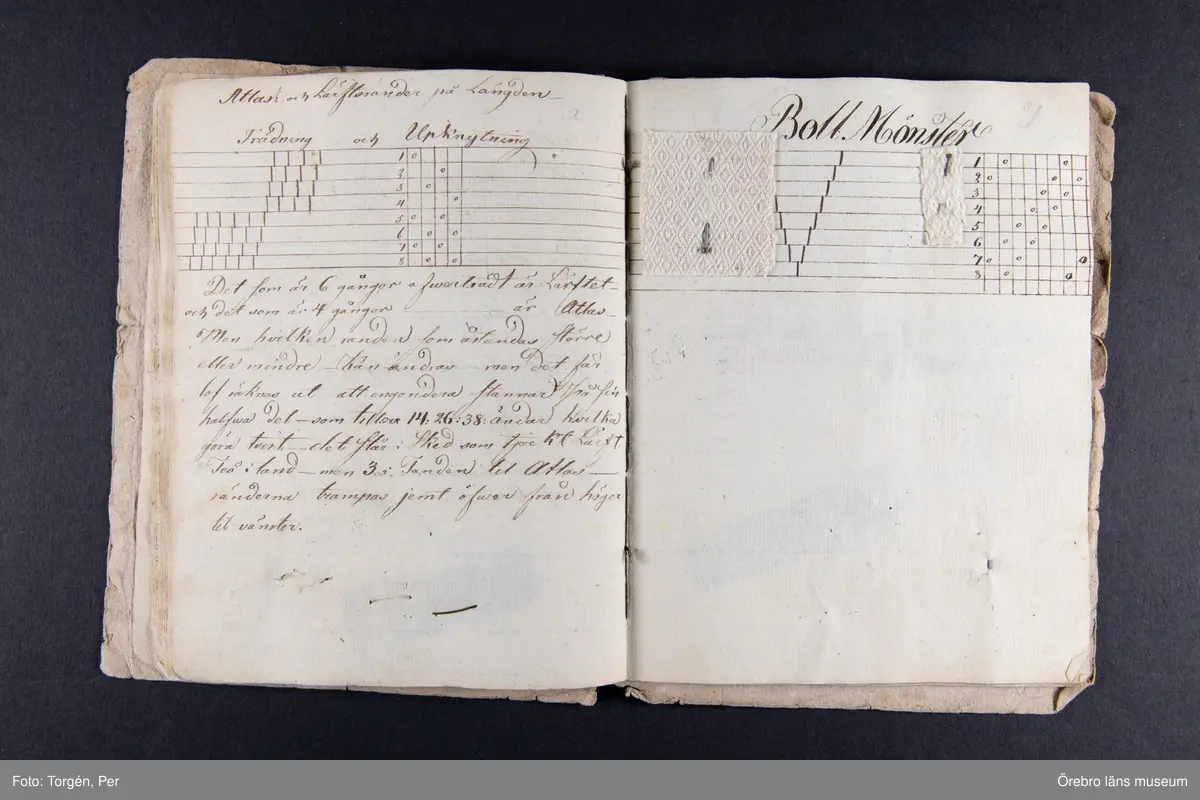 Atlas och Lärftsränder på Längden
Trädning och Upknytning
1
2
3
4
5
6
7
8
Det som är 6 gångor öfwerträdt är Lärftet
och det som är 4 gångor är Atlas
Men hvilken randen som åstundas större
eller mindre kan ändras men det får
lof räknas ut att engendera stannar
halfwa del som till 14: 26: 38: ändar hvilka
göra tvert det står i Sked som för Lärft
Två i tand men 3 i Tanden til Atlas
ränderna trampas jemt öfwer från höger
til vänster.
Boll. Mönster
1
2
3
4
5
6
7
8
Foto: Torgén, Per
Örebro läns museum